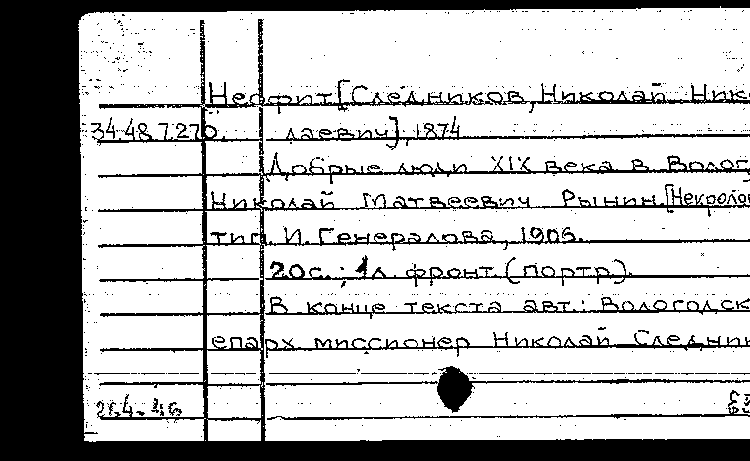 Неофит [Следников, Николай Нико
34-48 7.270. лаевич], 1874
Добрые люди XIX века в Волог
Николай Матвеевич Рынин. [Некролог
тип. И. Генералова, 1906.
20с.; 1л. фронт. (портр).
В конце текста авт.: Вологодск
епарх миссионер Николай Следник
264-46